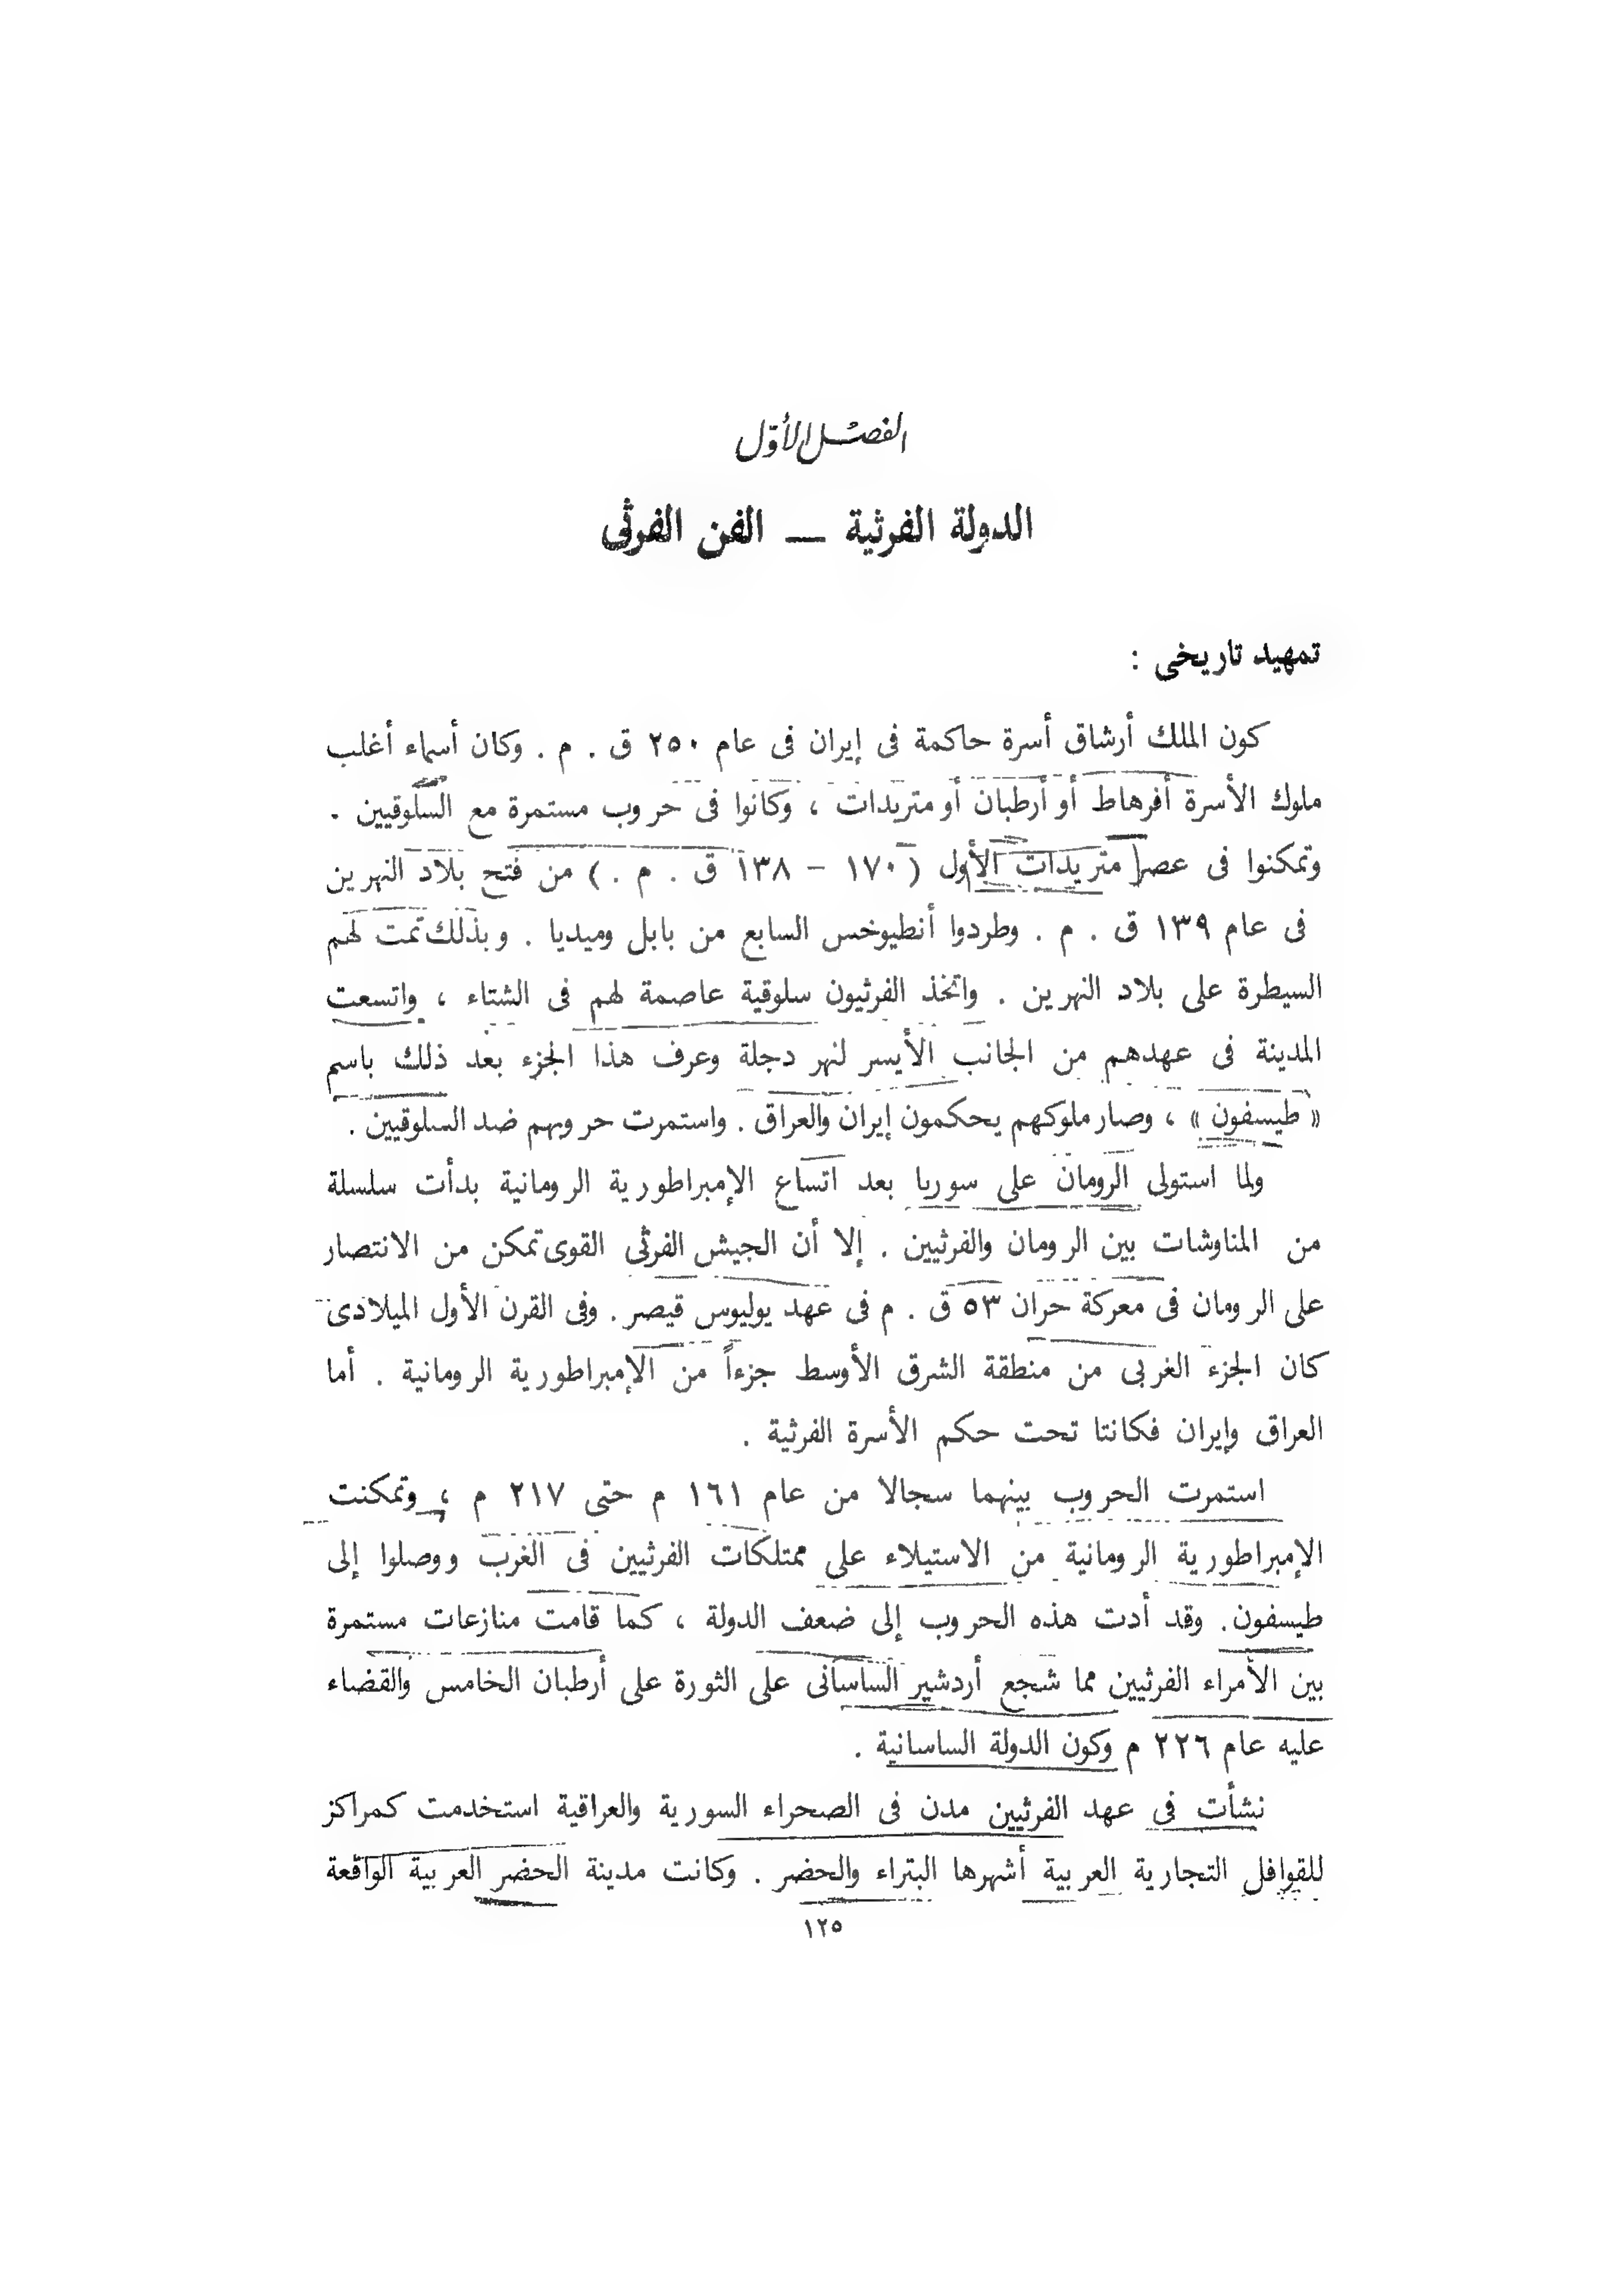 الفصل الأول
الدولة الفرثية — الفن الفرثى
تمهيد تاريخى :
كون الملك أرشاق أسرة حاكمة فى إيران فى عام ٢٥٠ ق . م . وكان أسماء أغلب
ملوك الأسرة أفرهاط أو أرطبان أو متريدات ، وكانوا فى حروب مستمرة مع السلوقيين .
وتمكنوا فى عصر متريدات الأول ( ١٧٠ – ١٣٨ ق . م . ) من فتح بلاد النهرين
فى عام ١٣٩ ق . م . وطردوا أنطيوخس السابع من بابل وميديا . وبذلك تمت لهم
السيطرة على بلاد النهرين . واتخذ الفرثيون سلوقية عاصمة لهم فى الشتاء ، واتسعت
المدينة فى عهدهم من الجانب الأيسر لنهر دجلة وعرف هذا الجزء بعد ذلك باسم
« طيسفون » ، وصار ملوكهم يحكمون إيران والعراق . واستمرت حروبهم ضد السلوقيين .
ولما استولى الرومان على سوريا بعد اتساع الإمبراطورية الرومانية بدأت سلسلة
من المناوشات بين الرومان والفرثيين . إلا أن الجيش الفرثى القوى تمكن من الانتصار
على الرومان فى معركة حران ٥٣ ق . م فى عهد يوليوس قيصر . وفى القرن الأول الميلادى
كان الجزء الغربى من منطقة الشرق الأوسط جزءاً من الإمبراطورية الرومانية . أما
العراق وإيران فكانتا تحت حكم الأسرة الفرثية .
استمرت الحروب بينهما سجالا من عام ١٦١ م حتى ٢١٧ م ، وتمكنت
الإمبراطورية الرومانية من الاستيلاء على ممتلكات الفرثيين فى الغرب ووصلوا إلى
طيسفون . وقد أدت هذه الحروب إلى ضعف الدولة ، كما قامت منازعات مستمرة
بين الأمراء الفرثيين مما شجع أردشير الساسانى على الثورة على أرطبان الخامس والقضاء
عليه عام ٢٢٦ م وكون الدولة الساسانية .
نشأت فى عهد الفرثيين مدن فى الصحراء السورية والعراقية استخدمت كمراكز
للقوافل التجارية العربية أشهرها البتراء والحضر . وكانت مدينة الحضر العربية الواقعة
١٢٥